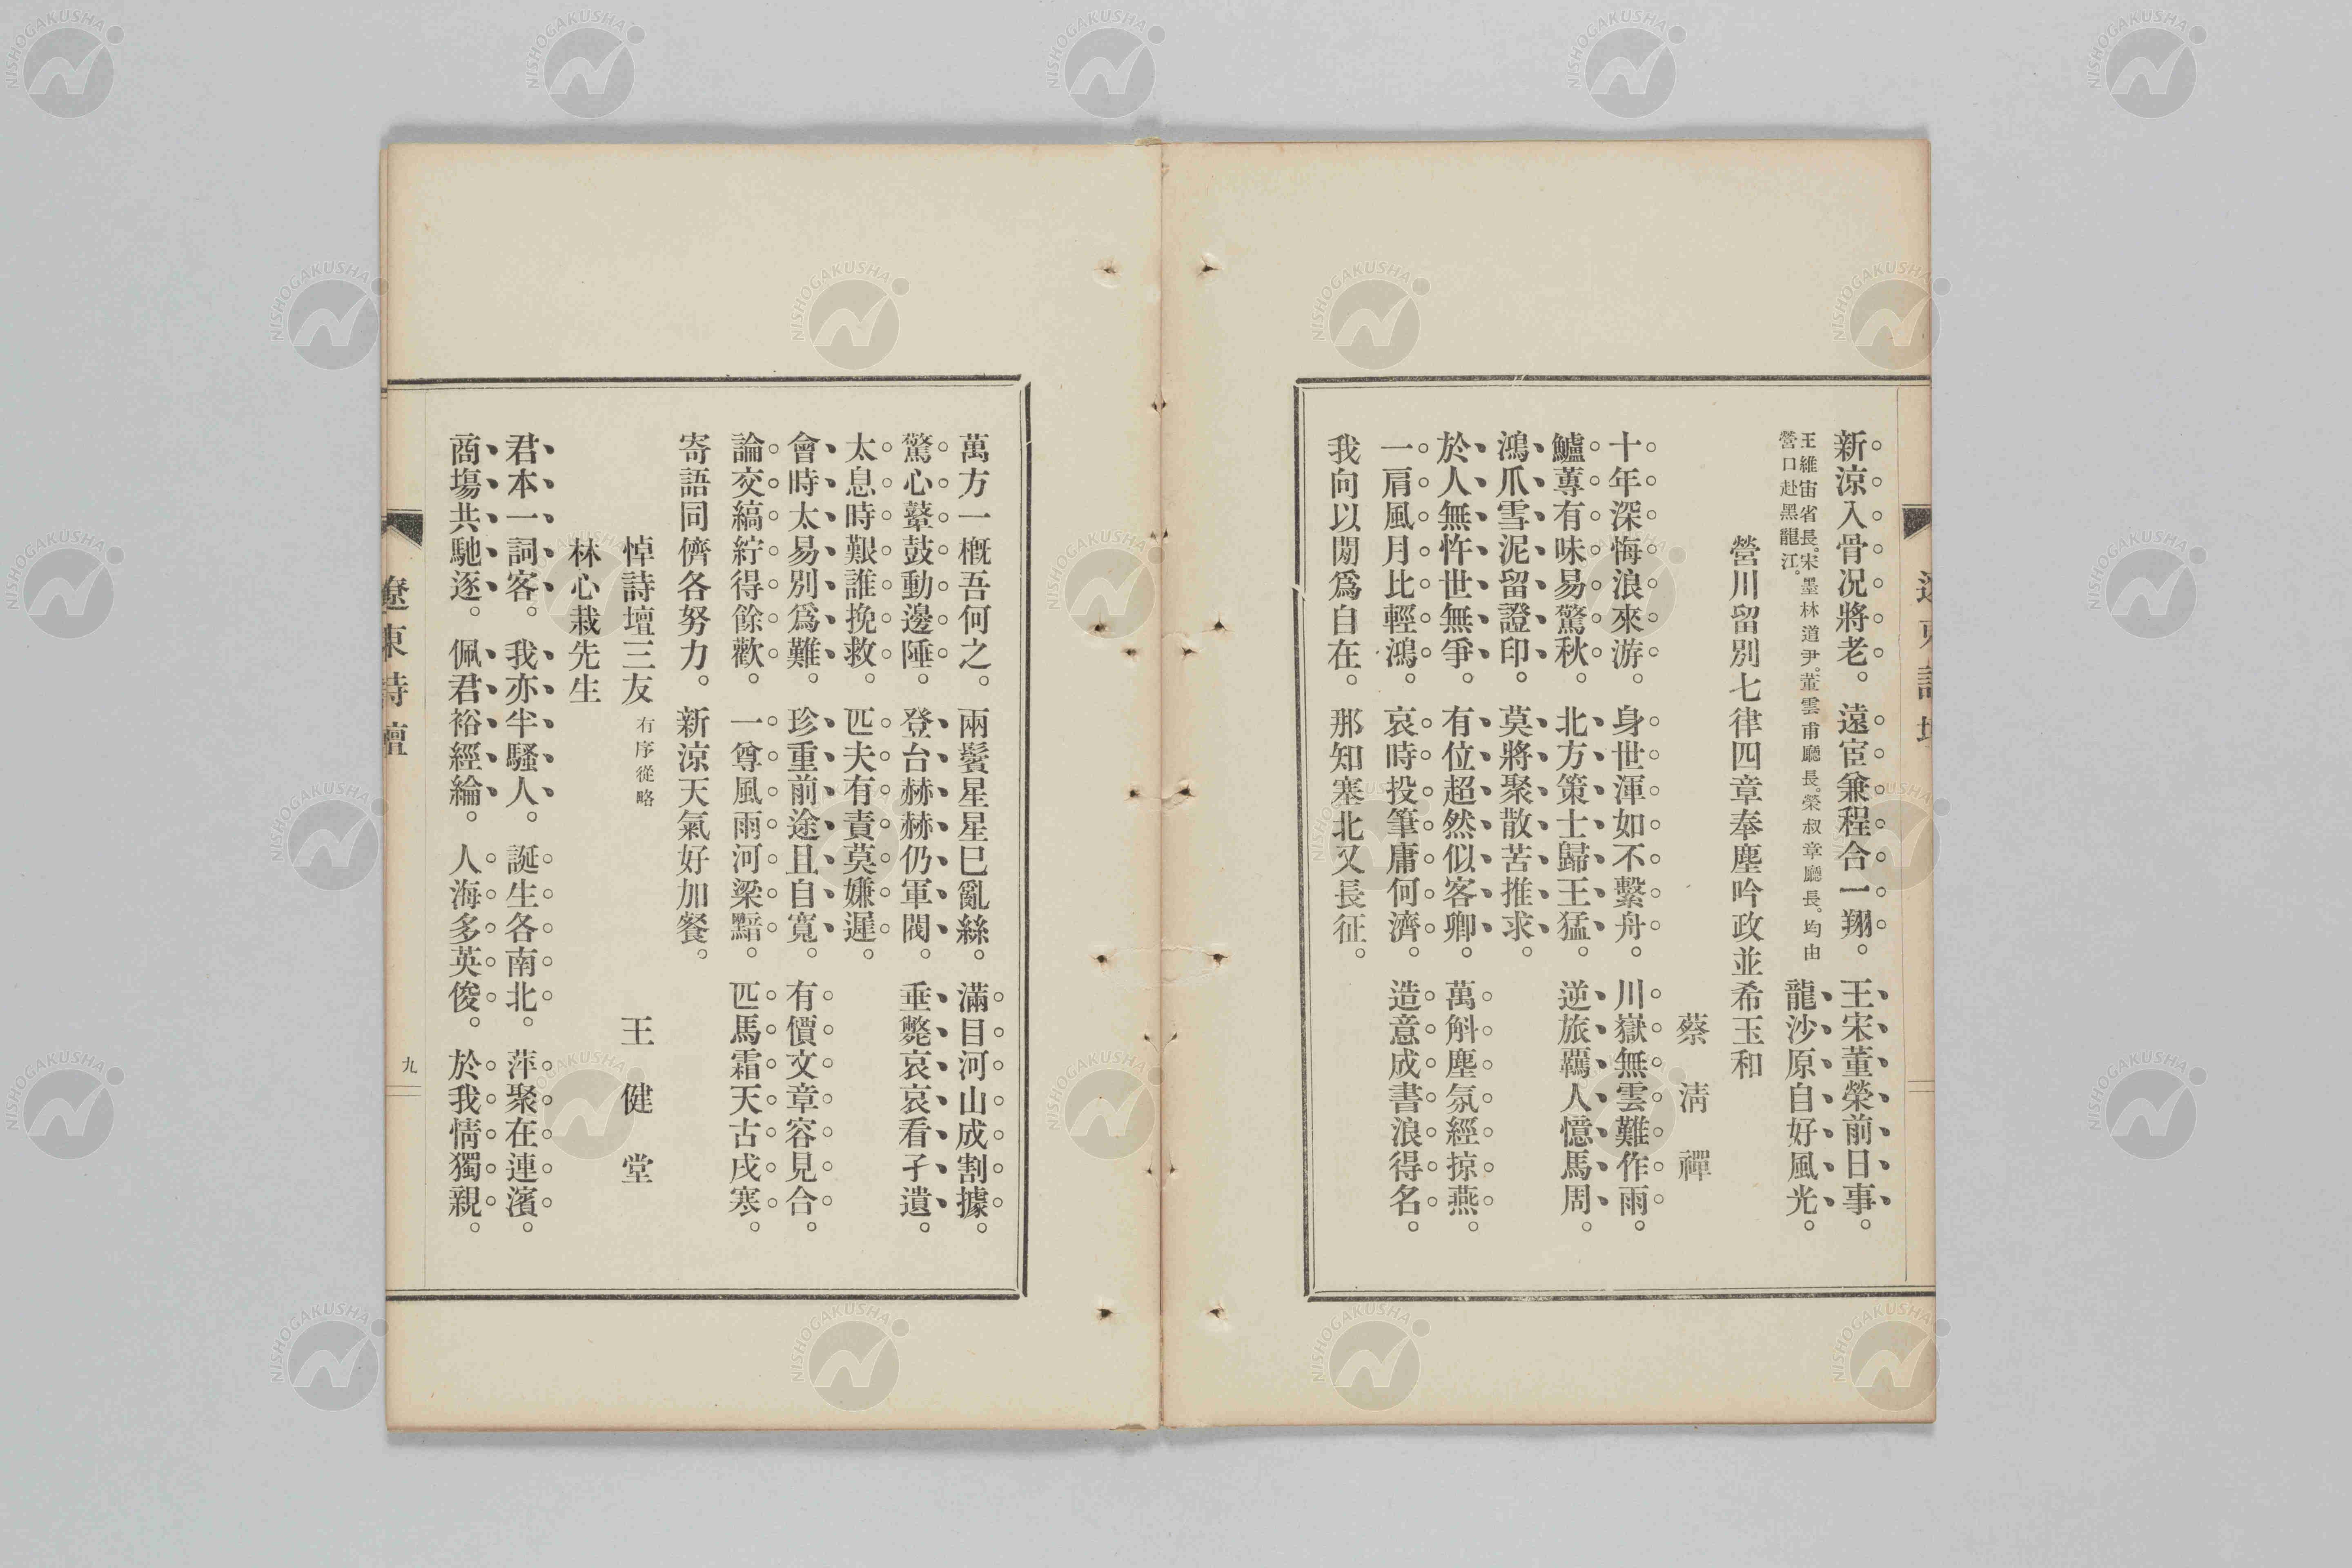 新涼入骨况將老。遠宦兼程合一翔。王宋董榮前日事。
王維宙省長。宋墨林道尹。董雲甫廳長。榮叔章廳長。均由
營口赴黑龍江。
龍沙原自好風光。
營川留別七律四章奉塵吟政並希玉和
蔡清禪
十年深悔浪來游。身世渾如不繫舟。川嶽無雲難作雨。
鱸蓴有味易驚秋。北方策士歸王猛。逆旅羈人憶馬周。
鴻爪雪泥留證印。莫將聚散苦推求。
於人無忤世無爭。有位超然似客卿。萬斛塵氛經掠燕。
一肩風月比輕鴻。哀時投筆庸何濟。造意成書浪得名。
我向以閒爲自在。那知塞北又長征。
萬方一槪吾何之。兩鬢星星巳亂絲。滿目河山成割據。
驚心鼙鼓動邊陲。登台赫赫仍軍閥。垂斃哀哀看孑遺。
太息時艱誰挽救。匹夫有責莫嫌遲。
會時太易別爲難。珍重前途且自寬。有價文章容見合。
論交縞紵得餘歡。一尊風雨河梁黯。匹馬霜天古戍寒。
寄語同儕各努力。新涼天氣好加餐。
悼詩壇三友 有序從略 王健堂
林心栽先生
君本一詞客。我亦半騷人。誕生各南北。萍聚在連濱。
商塲共馳逐。佩君裕經綸。人海多英俊。於我情獨親。
遼東詩壇
九
NISHOGAKUSHA